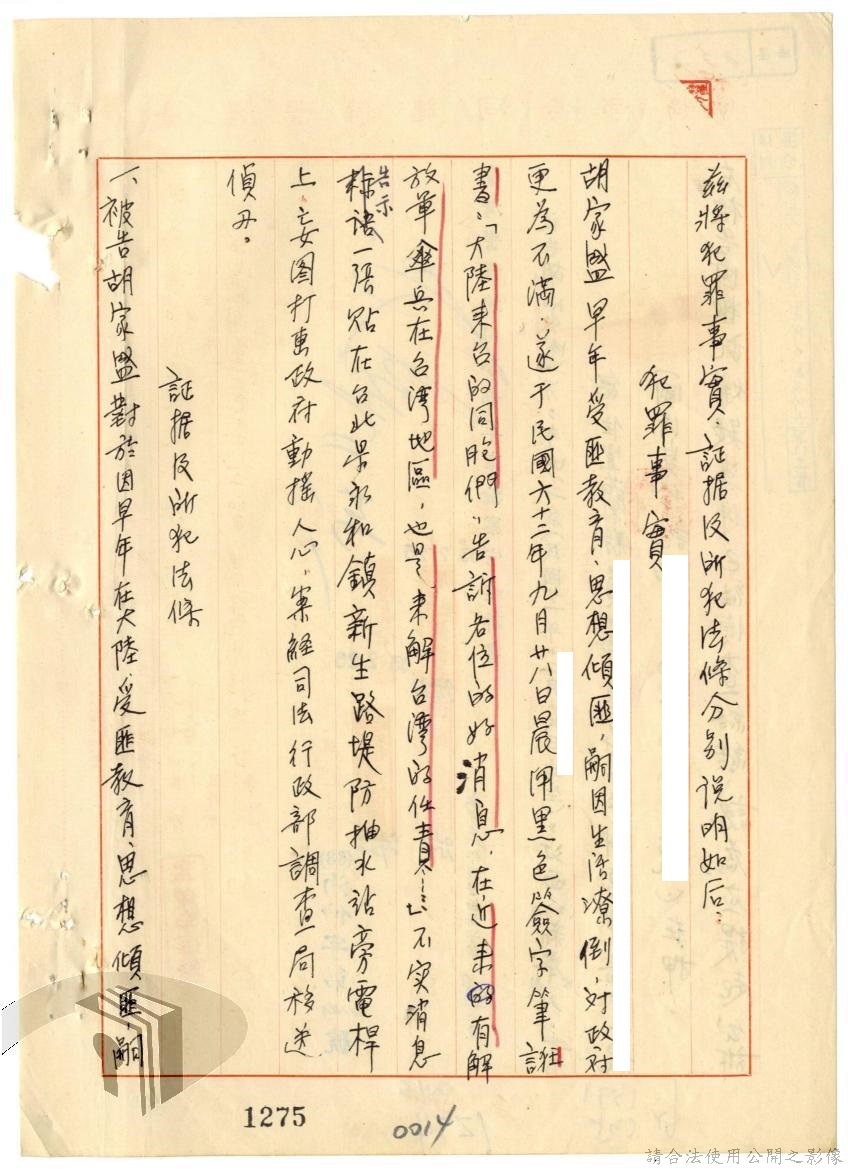 茲將犯罪事實、証据及所犯法條分別说明如后：
犯罪事實
胡家盛早年受匪教育，思想傾匪，嗣因生活潦倒，対政府
更為不滿，遂于民國六十二年九月廿八日晨用黑色簽字筆誑
書：「大陸来台的同胞們，告訴各位的好消息，在近来的有解
放軍傘兵在台湾地區，也是来解台灣的任責……」不实消息
告示
標语一張貼在台北県永和鎮新生路堤防抽水站旁電桿
上，妄图打击政府動摇人心，案経司法行政部調查局移送
偵办。
証据及所犯法條
一、被告胡家盛對於因早年在大陸受匪教育，思想傾匪，嗣
1275
0014
請合法使用公開之影像